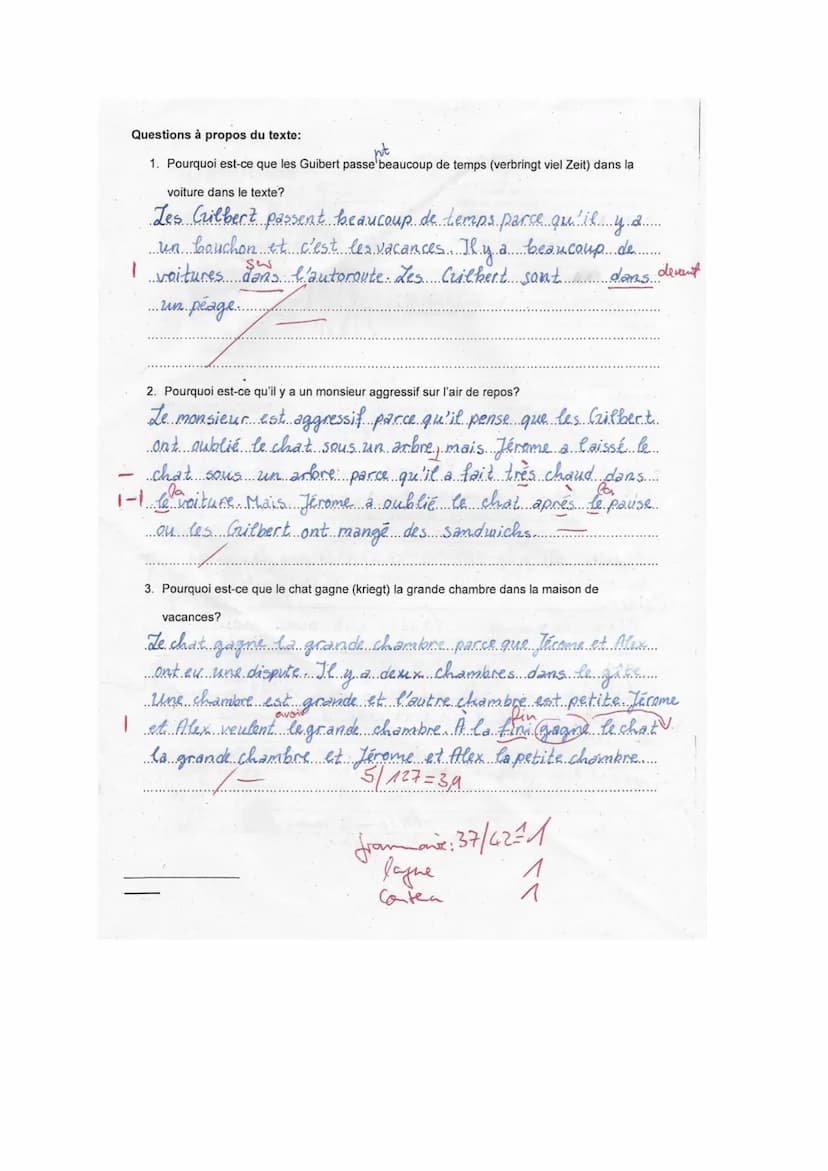 Questions à propos du texte:
nt
1. Pourquoi est-ce que les Guibert passe beaucoup de temps (verbringt viel Zeit) dans la
voiture dans le texte?
Les Guilbert passent beaucoup de temps parce qu'il y a
un bouchon et c'est les vacances. Il y a beaucoup de
sur
| voitures dans l'autoroute. Les Guilbert sont dans devant
un péage.
2. Pourquoi est-ce qu'il y a un monsieur aggressif sur l'air de repos?
Le monsieur est aggressif parce qu'il pense que les Guilbert
ont oublié le chat sous un arbre, mais Jérome a laissé le
— chat sous un arbre parce qu'il a fait très chaud dans
la la
|-| le voiture. Mais Jérome a oublié le chat après le pause
ou les Guilbert ont mangé des sandwichs.
3. Pourquoi est-ce que le chat gagne (kriegt) la grande chambre dans la maison de
vacances?
Le chat gagne la grande chambre parce que Jérome et Alex
ont eu une dispute. Il y a deux chambres dans le gîte
Une chambre est grande et l'autre chambre est petite. Jérome
avoir fin
| et Alex veulent le grande chambre. À la fini gagne le chat
la grande chambre et Jérome et Alex la petite chambre.
5/127=3,9
grammaire: 37/42=1
1
1